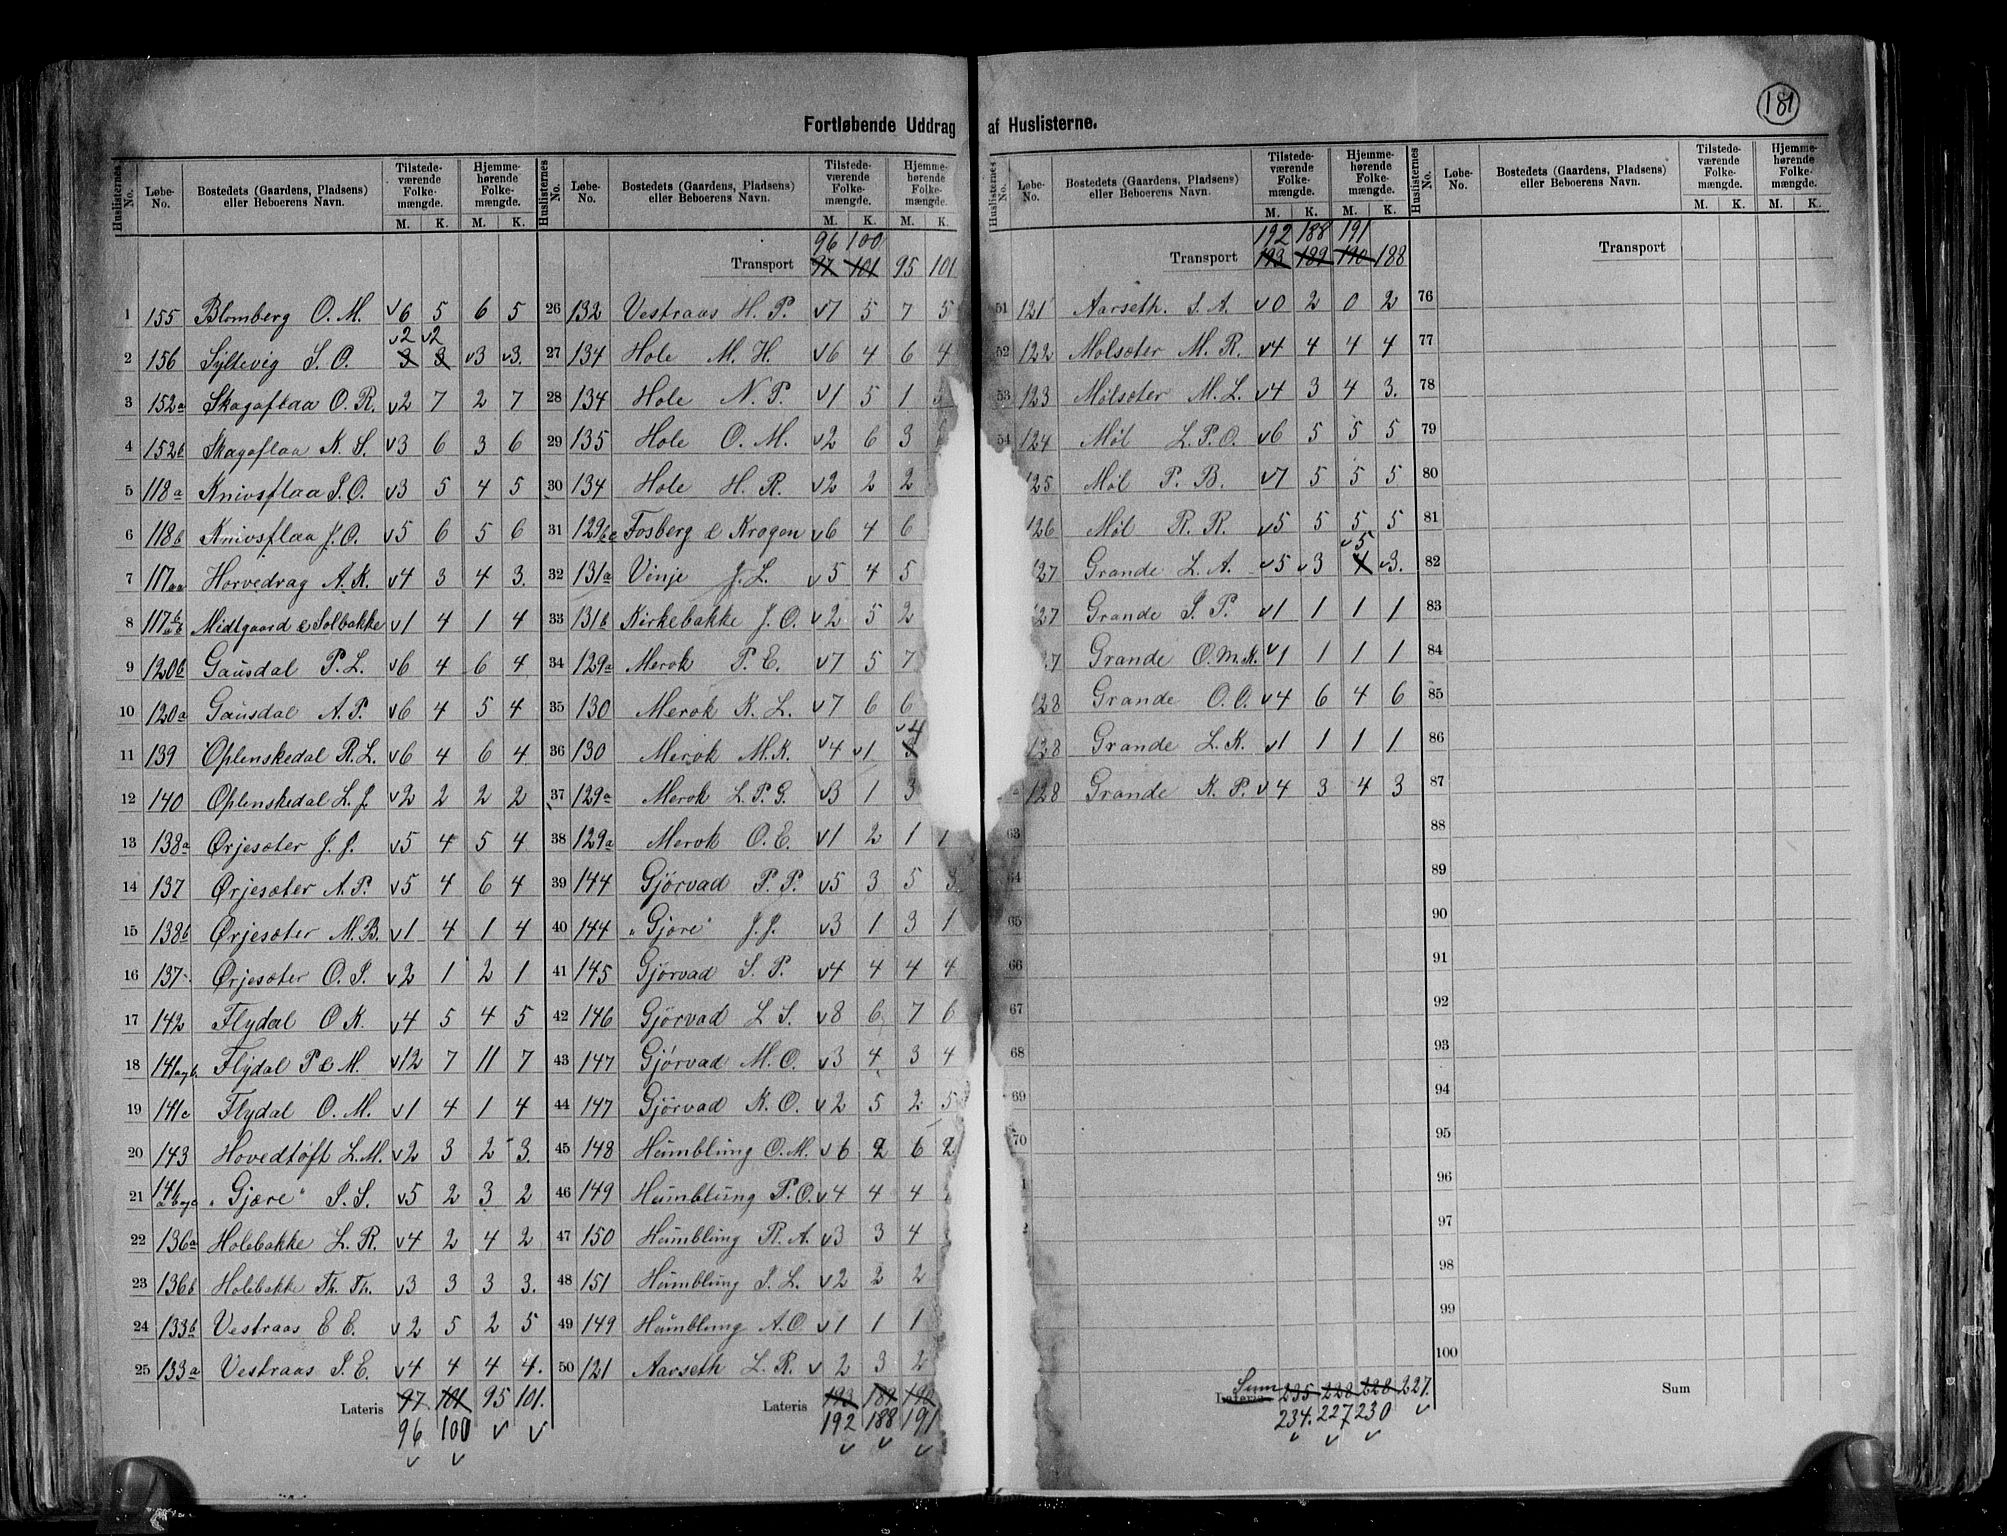 181
Fortløbende Uddrag af Huslisterne.
Huslisternes No. Løbe-No. Bostedets (Gaardens, Pladsens) eller Beboerens Navn. Tilstede-værende Folke-mængde. M. K. Hjemme-hørende Folke-mængde. M. K.
1 155 Blomberg O. M. v6 5 6 5
v2 v2
2 156 Syltevig S. O. 3 3 v3 v3.
3 152a Skagaflaa O. R. v2 7 2 7
4 152b Skagaflaa K. S. v3 6 3 6
5 118a Knivsflaa I. O. v3 5 4 5
6 118b Knivsflaa J. O. v5 6 5 6
7 117aa Horvedrag A. K. v4 3 4 3.
8 117 Midtgaard & Solbakke v1 4 1 4
9 120b Gausdal P. L. v6 4 6 4
10 120a Gausdal A. P. v6 4 5 4
11 139 Oplenskedal R. L. v6 4 6 4
12 140 Oplenskedal L. J. v2 2 2 2
13 138a Ørjesæter J. J. v5 4 5 4
14 137 Ørjesæter A. P. v5 4 6 4
15 138b Ørjesæter M. B. v1 4 1 4
16 137 Ørjesæter O. S. v2 1 2 1
17 142 Flydal O K. v4 5 4 5
18 141 Flydal P & M. v12 7 11 7
19 141c Flydal O. M. v1 4 1 4
20 143 Hovedtøft L. M. v2 3 2 3.
21 "Gjære" S. S. v5 2 3 2
22 136a Holebakke L. R. v4 2 4 2
23 136b Holebakke Th. Th. v3 3 3 3.
24 133b Vestraas E E. v2 5 2 5
25 133a Vestraas I. E. v4 4 4 4.
Lateris 97 101 95 101.
96 100 v v
v v
Huslisternes No. Løbe-No. Bostedets (Gaardens, Pladsens) eller Beboerens Navn. Tilstede-værende Folke-mængde. M. K. Hjemme-hørende Folke-mængde. M. K.
96 100
Transport 97 101 95 101
26 132 Vestraas H. P. v7 5 7 5
27 134 Hole M. H. v6 4 6 4
28 134 Hole N. P. v1 5 1
29 135 Hole O. M. v2 6 3
30 134 Hole H. R. v2 2 2
31 Fosberg & Krogen v6 4 6
32 131a Vinje J. L. v5 4 5
33 131b Kirkebakke J. O. v2 5 2
34 129a Merok P. E. v7 5 7
35 130 Merok K. L. v7 6 6
v4
36 130 Merok M. K. v4 v1 3
37 129a Merok L. P. G. v3 1 3
38 129a Merok O. E. v1 2 1 1
39 144 Gjørvad P. P. v5 3 5 3
40 144 "Gjøre" J. J. v3 1 3 1
41 145 Gjørvad S. P. v4 4 4 4
42 146 Gjørvad L S. v8 6 7 6
43 147 Gjørvad M. O. v3 4 3 4
44 147 Gjørvad K. O. v2 5 2 5
45 148 Humblung O. M. v6 2 6 2
46 149 Humblung P. O. v4 4 4
47 150 Humblung R. A. v3 3 4
48 151 Humblung I. L. v2 2 2
49 149 Humblung A. O. v1 1 1
50 121 Aarseth L. R. v2 3 2
Lateris 193 189 190
192 188 191
v v v
Huslisternes No. Løbe-No. Bostedets (Gaardens, Pladsens) eller Beboerens Navn. Tilstede-værende Folke-mængde. M. K. Hjemme-hørende Folke-mængde. M. K.
192 188 191
Transport 193 189 190 188
51 121 Aarseth. S. A. v0 2 0 2
52 122 Molsæter M. R. v4 4 4 4
53 123 Mølsæter M. L. v4 3 4 3.
54 124 Møl L. P. O. v6 5 5 5
125 Møl P. B. v7 5 5 5
126 Møl R. R. v5 5 5 5
v5
127 Grande L. A. v5 v3 4 v3.
127 Grande S. P. v1 1 1 1
127 Grande O. M. K. v1 1 1 1
128 Grande O. O. v4 6 4 6
128 Grande L. K. v1 1 1 1
128 Grande K. P. v4 3 4 3
63
64
65
66
67
68
69
70
Lateris Sum 235 228 228 227.
234. 227 230 v
v v v
Huslisternes No. Løbe-No. Bostedets (Gaardens, Pladsens) eller Beboerens Navn. Tilstede-værende Folke-mængde. M. K. Hjemme-hørende Folke-mængde. M. K.
Transport
76
77
78
79
80
81
82
83
84
85
86
87
88
89
90
91
92
93
94
95
96
97
98
99
100
Sum